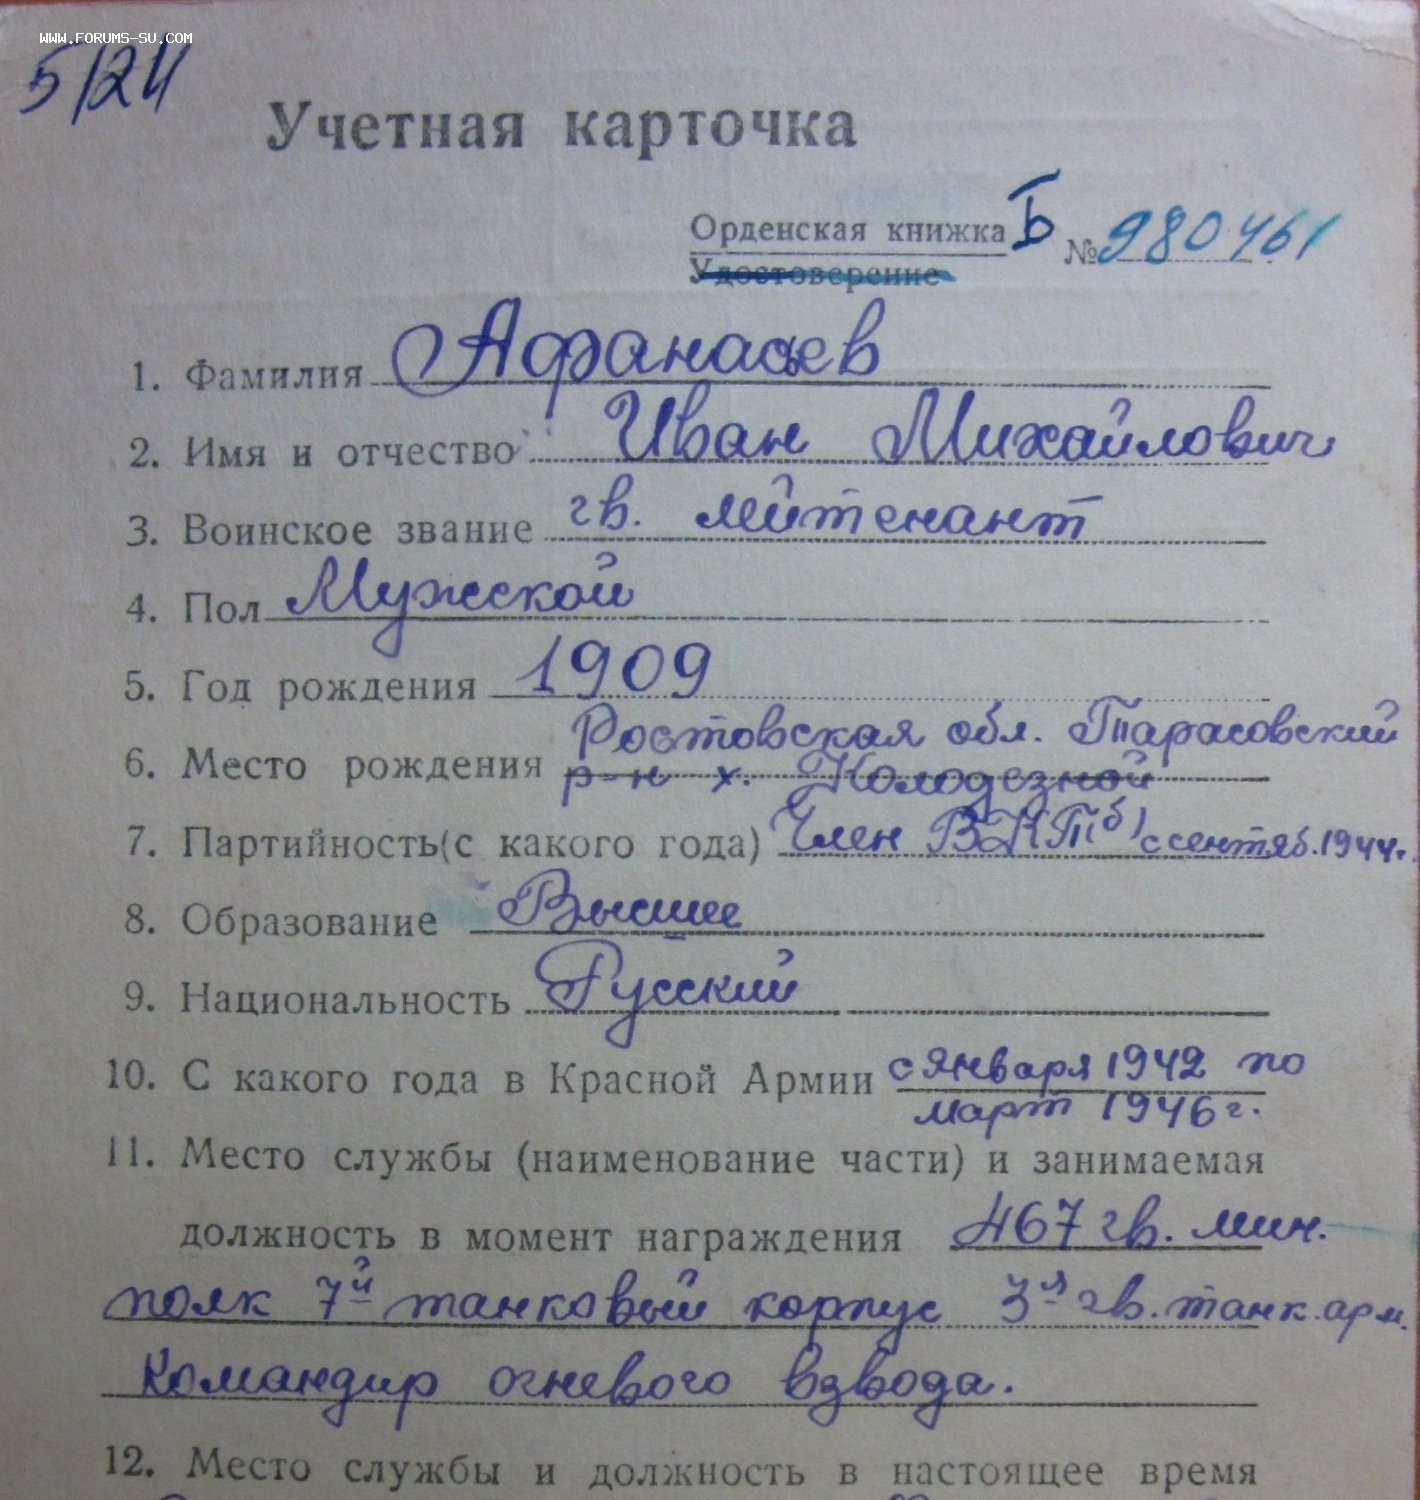 WWW.FORUMS-SU.COM
5/24
Учетная карточка
Орденская книжка Б № 980461
Удостоверение
1. Фамилия Афанасьев
2. Имя и отчество Иван Михайлович
3. Воинское звание гв. лейтенант
4. Пол Мужской
5. Год рождения 1909
Ростовская обл. Тарасовский
6. Место рождения р-н х. Колодезной
7. Партийность (с какого года) Член ВКП б) с сентяб. 1944г.
8. Образование Высшее
9. Национальность Русский
10. С какого года в Красной Армии с января 1942 по
март 1946 г.
11. Место службы (наименование части) и занимаемая
должность в момент награждения 467 гв. мин.
полк 7й танковый корпус 3я гв. танк. арм.
Командир огневого взвода.
12. Место службы и должность в настоящее время